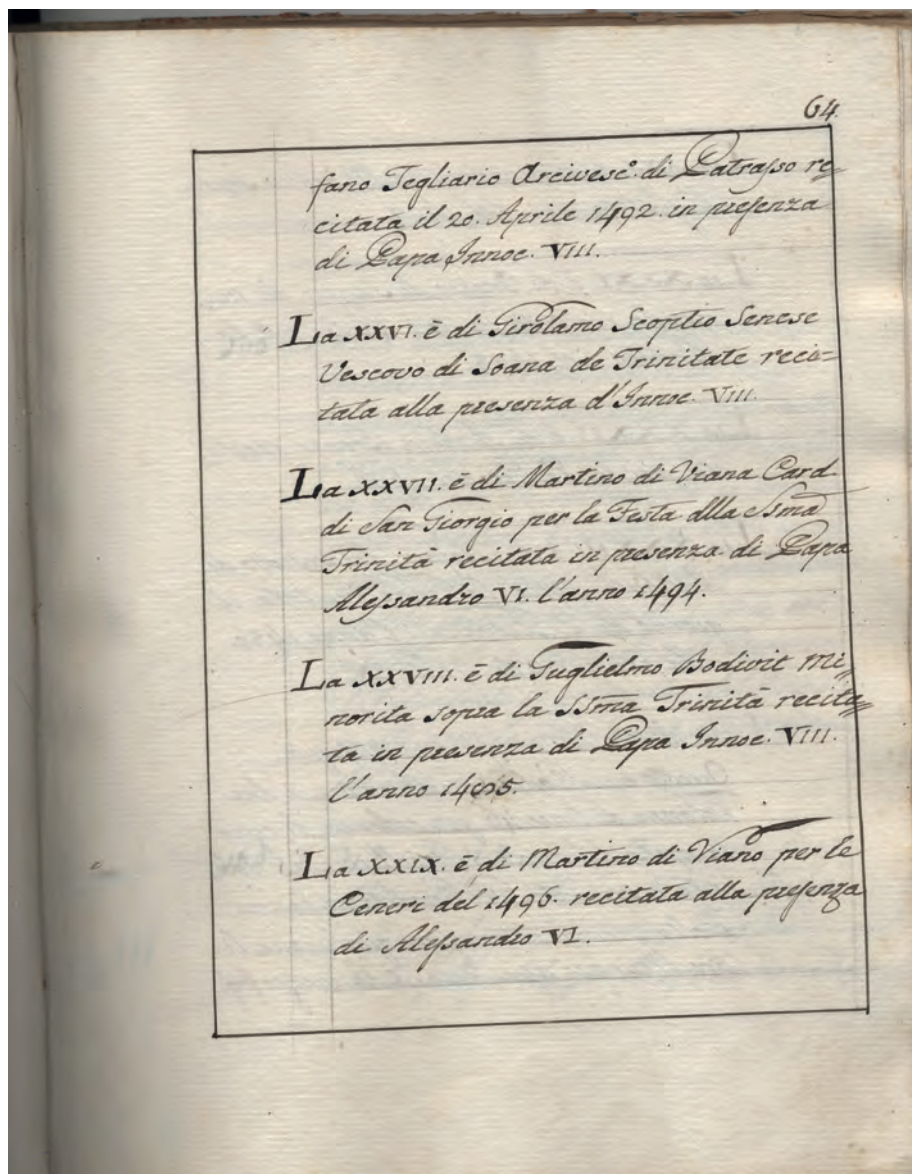 64.
fano Tegliario Arcivesc.º di Patrasso re=
citata il 20. Aprile 1492. in presenza
di Papa Innoc. VIII.
La XXVI. è di Girolamo Scoptio Senese
Vescovo di Soana de Trinitate reci=
tata alla presenza d'Innoc. VIII.
La XXVII. è di Martino di Viana Card
di San Giorgio per la Festa dlla Ssma
Trinità recitata in presenza di Papa
Alessandro VI. l'anno 1494.
La XXVIII. è di Guglielmo Bodivit Mi=
norita sopra la SSma Trinità recita=
ta in presenza di Papa Innoc. VIII.
l'anno 1485.
La XXIX. è di Martino di Viano per le
Ceneri del 1496. recitata alla presenza
di Alessandro VI.